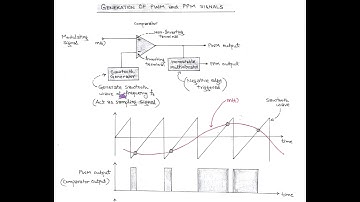 GENERATION OF PWM and PPM SIGNALS
Comparator
Non-Inverting
Terminal
Modulating
Signal
m(t)
PWM output
Inverting
Terminal
Monostable
multivibrator
PPM output
Sawtooth
Generator
(Negative edge
triggered)
Generate sawtooth
wave of frequency fs
(Act as sampling signal)
m(t)
Sawtooth
wave
time
PWM output
(Comparator output)
time